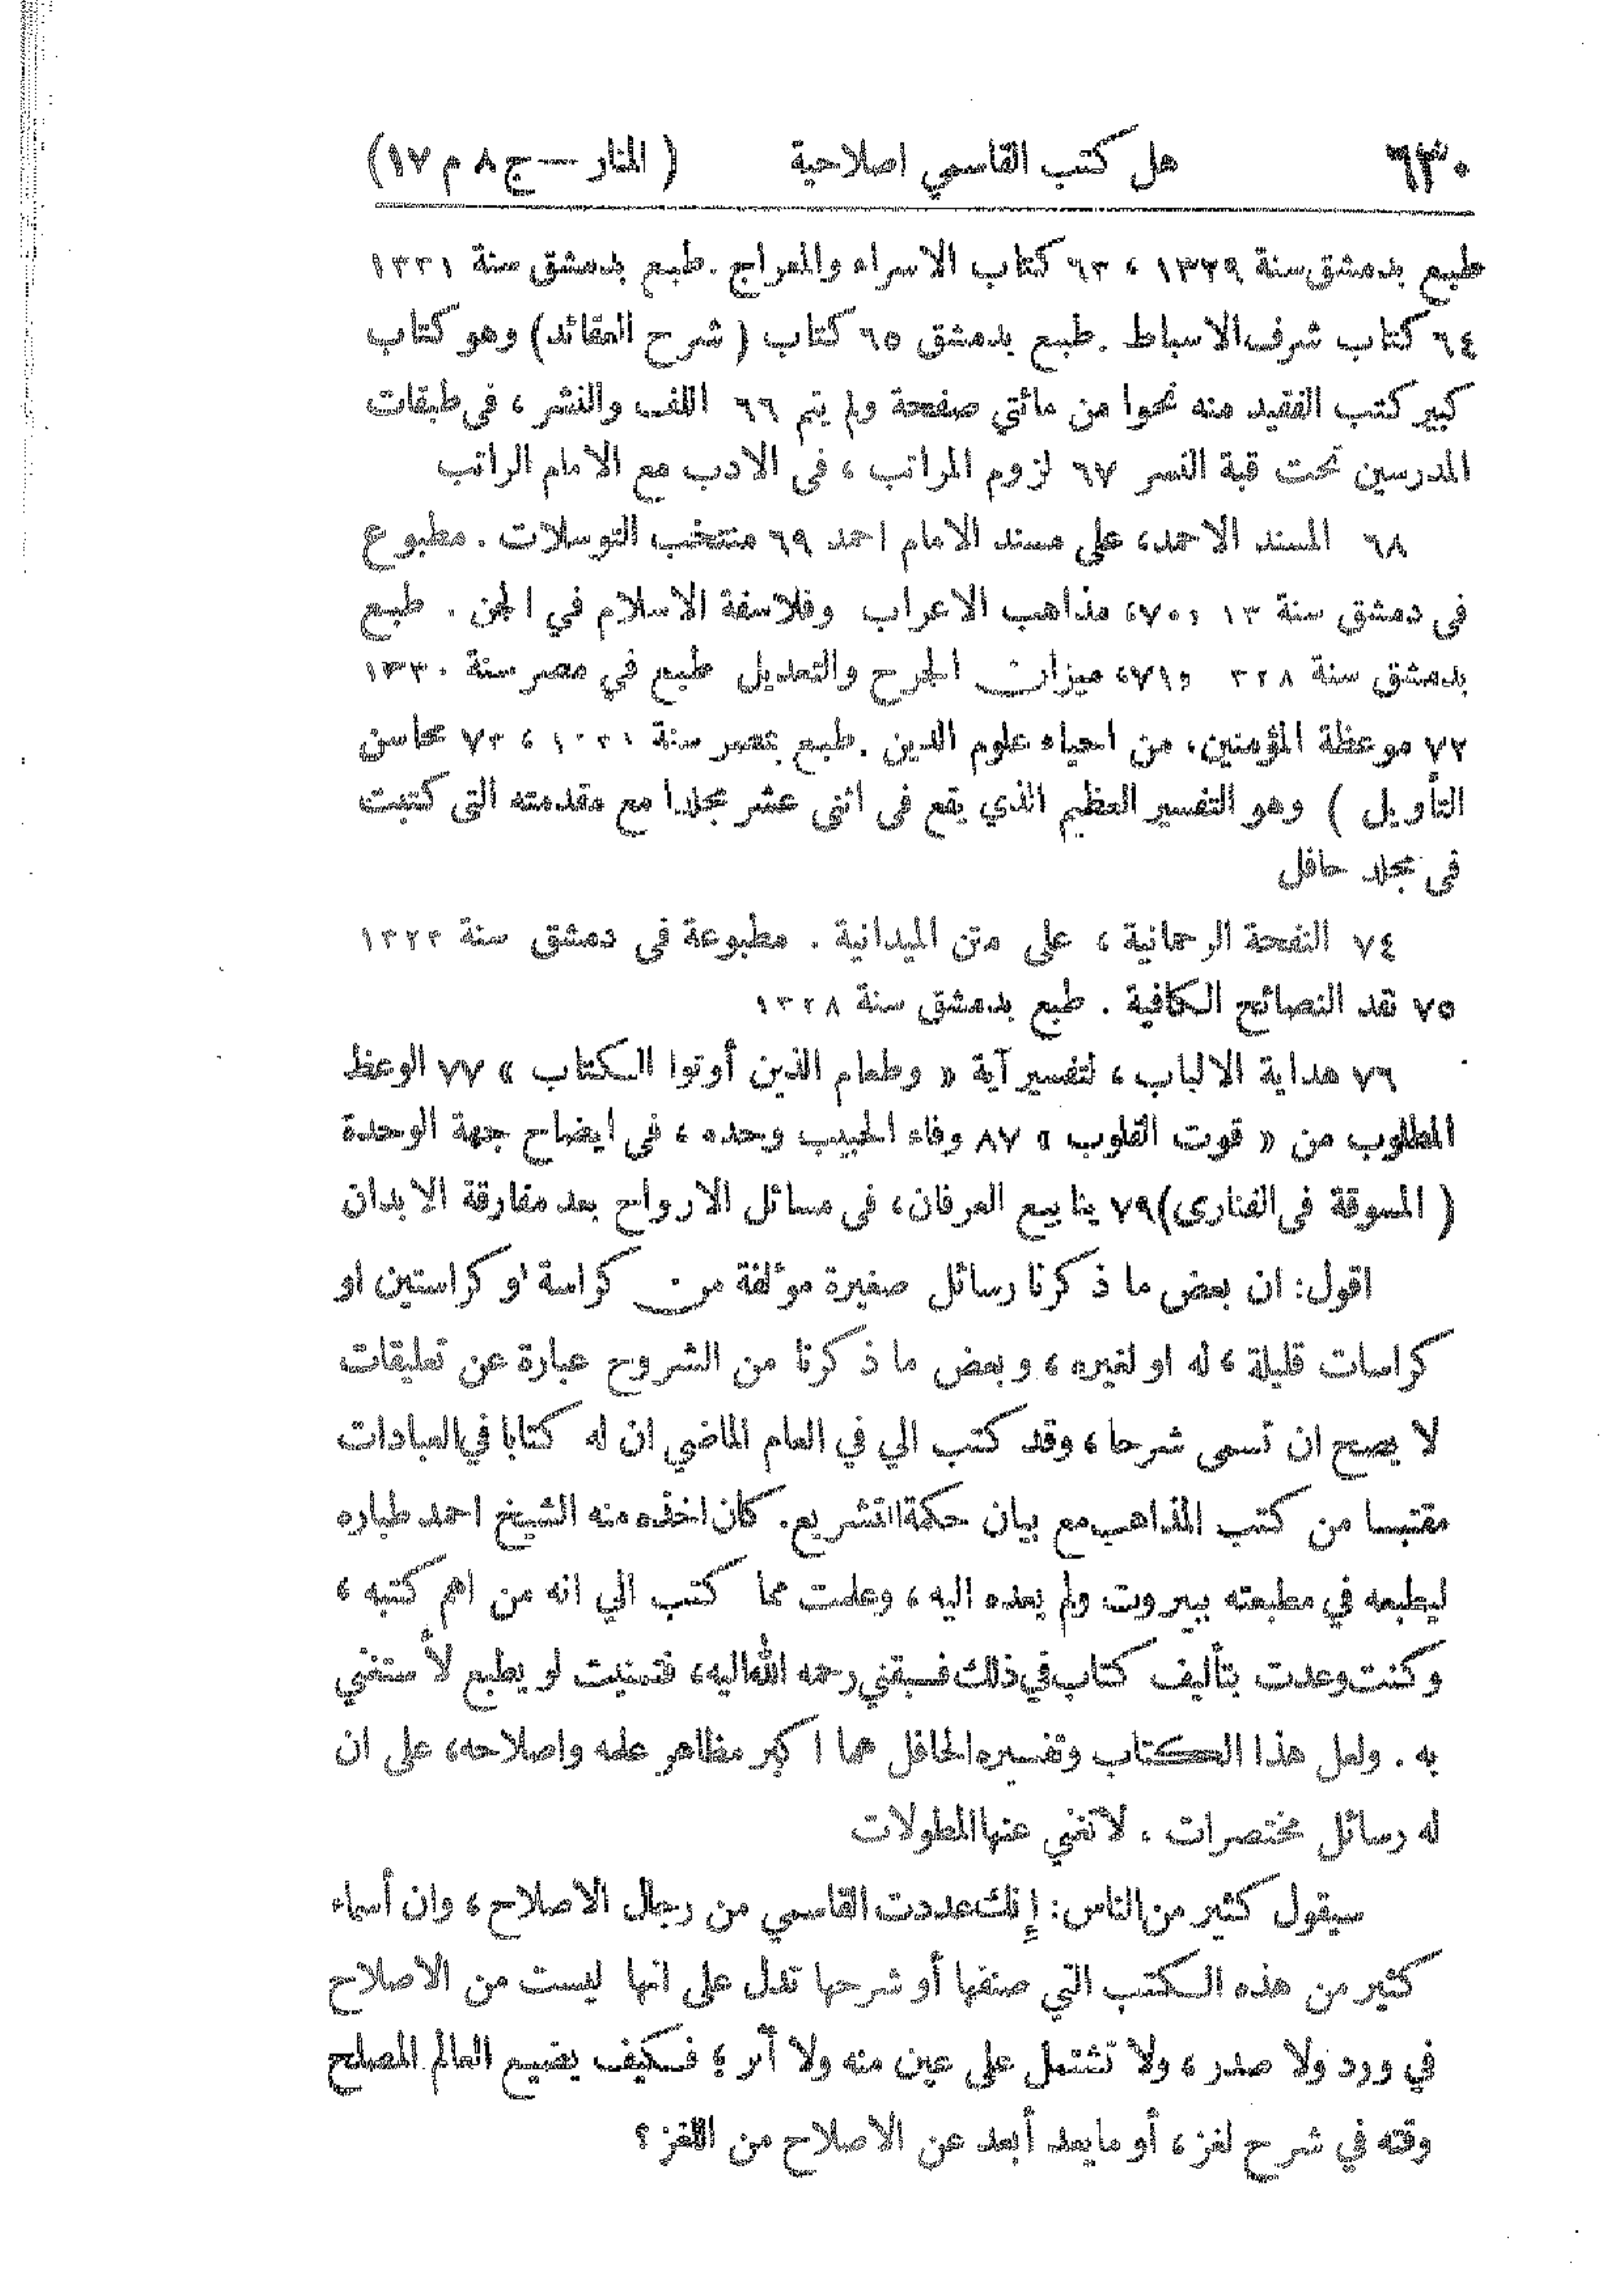 ٦٣٠ هل كتب القاسمي اصلاحية ( المنار — ج ٨ م ١٧)
طبع بدمشق سنة ١٣٢٩ ، ٦٣ كتاب الاسراء والمعراج . طبع بدمشق سنة ١٣٣١
٦٤ كتاب شرف الاسباط . طبع بدمشق ٦٥ كتاب ( شرح العقائد) وهو كتاب
كبير كتب الفقيد منه نحوا من مائتي صفحة ولم يتم ٦٦ اللف والنشر ، فى طبقات
المدرسين تحت قبة النسر ٦٧ لزوم المراتب ، فى الادب مع الامام الراتب
٦٨ المسند الاحمد، على مسند الامام احمد ٦٩ منتخب التوسلات . مطبوع
فى دمشق سنة ١٣ و٧٠، مذاهب الاعراب وفلاسفة الاسلام في الجن . طبع
بدمشق سنة ٣٢٨ و٧١، ميزان الجرح والتعديل طبع في مصر سنة ١٣٣٠
٧٢ موعظة المؤمنين، من احياء علوم الدين . طبع بمصر سنة ، ٧٣ محاسن
التأويل ) وهو التفسير العظيم الذي يقع فى اثنى عشر مجلدا مع مقدمته التى كتبت
فى مجلد حافل
٧٤ النفحة الرحمانية ، على متن الميدانية . مطبوعة فى دمشق سنة ١٣٢٣
٧٥ نقد النصائح الكافية . طبع بدمشق سنة ١٣٢٨
٧٦ هداية الالباب ، لتفسير آية « وطعام الذين أوتوا الكتاب » ٧٧ الوعظ
المطلوب من « قوت القلوب » ٨٧ وفاء الحبيب وحده ، فى ايضاح جهة الوحدة
( المسوقة فى الفنارى) ٧٩ ينابيع العرفان، فى مسائل الارواح بعد مفارقة الابدان
اقول: ان بعض ما ذكرنا رسائل صغيرة مؤلفة من كراسة او كراستين او
كراسات قليلة ، له او لغيره ، وبعض ما ذكرنا من الشروح عبارة عن تعليقات
لا يصح ان تسمى شرحا ، وقد كتب الي في العام الماضي ان له كتابا في العبادات
مقتبسا من كتب المذاهب مع بيان حكمة التشريع. كان اخذه منه الشيخ احمد طباره
ليطبعه في مطبعته ببيروت ولم يعده اليه ، وعلمت مما كتب الي انه من اهم كتبه ،
وكنت وعدت بتأليف كتاب في ذلك فسبقني رحمه الله اليه، فتمنيت لو يطبع لأستغني
به . ولعل هذا الكتاب وتفسيره الحافل هما اكبر مظاهر علمه واصلاحه، على ان
له رسائل مختصرات ، لا تغني عنها المطولات
سيقول كثير من الناس: إنك عددت القاسمي من رجال الاصلاح ، وان أسماء
كثير من هذه الكتب التي صنفها أو شرحها تدل على انها ليست من الاصلاح
في ورد ولا صدر ، ولا تشتمل على عين منه ولا أثر ؛ فكيف يضيع العالم المصلح
وقته في شرح لغز ، أو ما يعد أبعد عن الاصلاح من اللغز ؟